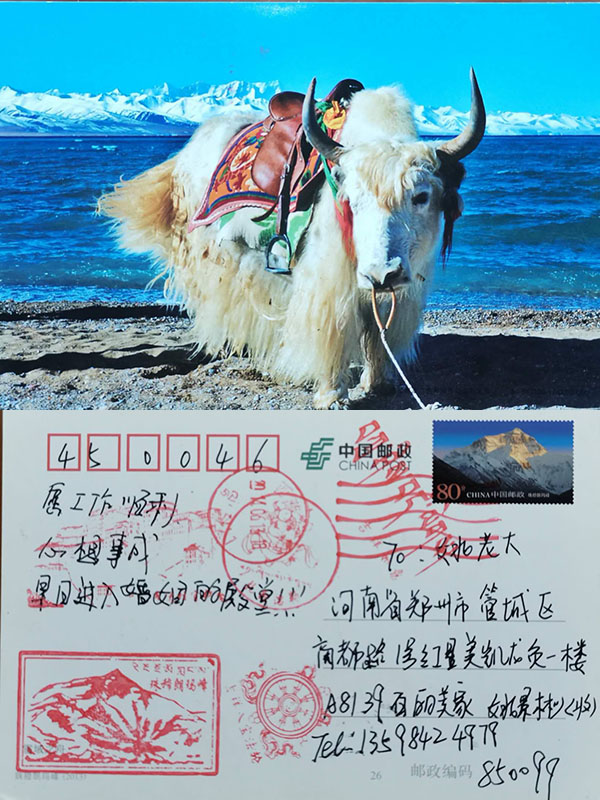 450046
中国邮政
CHINA POST
80分
CHINA 中国邮政
愿工作顺利
心想事成
早日进入婚姻的殿堂!!!
To: 姚老大
河南省郑州市管城区
商都路 红星美凯龙负一楼
A8139 百的美家 姚
Tel: 13598424979
珠穆朗玛峰
珠穆朗玛峰 (2013)
26
邮政编码
850099